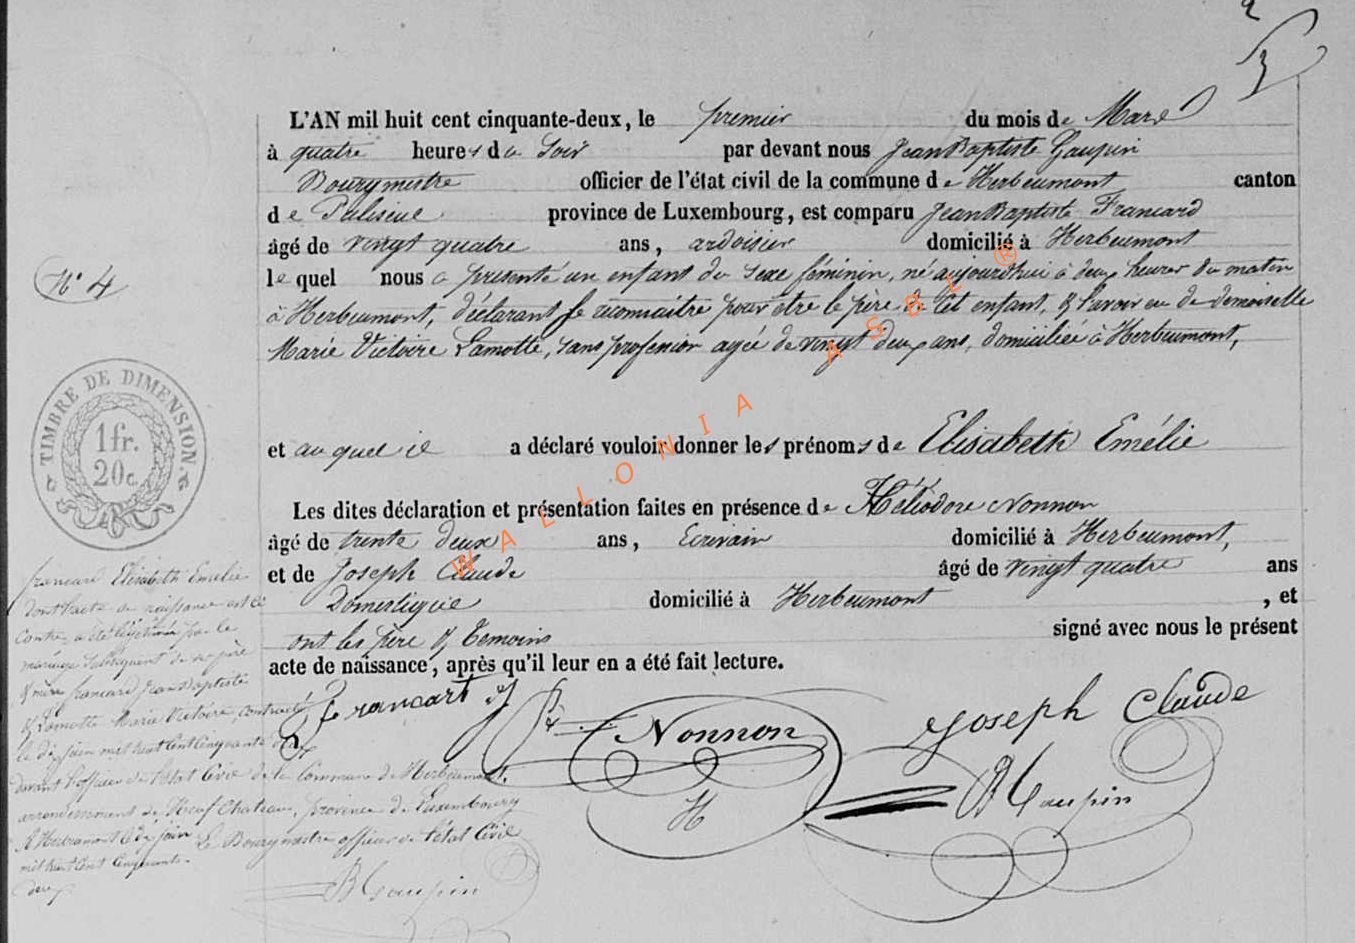 2
3
L'AN mil huit cent cinquante-deux, le premier du mois de Mars
à quatre heures du Soir par devant nous Jean Baptiste Gaupin
Bourgmestre officier de l'état civil de la commune de Herbeumont canton
de Paliseul province de Luxembourg, est comparu Jean Baptiste Francard
âgé de vingt quatre ans, ardoisier domicilié à Herbeumont
le quel nous a présenté un enfant du sexe féminin, né aujourd'hui à deux heures du matin
à Herbeumont, déclarant se reconnaitre pour être le père de cet enfant, & l'avoir eu de demoiselle
Marie Victoire Lamotte, sans profession agée de vingt deux ans, domiciliée à Herbeumont,
et auquel il a déclaré vouloir donner les prénoms de Elisabeth Emélie
Les dites déclaration et présentation faites en présence de Héliodore Nonnon
âgé de trente deux ans, Ecrivain domicilié à Herbeumont,
et de Joseph Claude âgé de vingt quatre ans
Domestique domicilié à Herbeumont, et
ont les père & témoins signé avec nous le présent
acte de naissance, après qu'il leur en a été fait lecture.
francart J
Nonnon
H
Joseph Claude
JB Gaupin
N° 4
TIMBRE DE DIMENSION.
1 fr.
20 c.
francard Elisabeth Emelie
dont l'acte de naissance est ci
contre, a été légitimée par le
mariage subséquent de ses père
& mère francard Jean Baptiste
& Lamotte Marie Victoire, contracté
le dix juin mil huit cent cinquante deux
devant l'officier de l'état Civil de la Commune de Herbeumont,
arrondissement de Neufchateau, province de Luxembourg
A Herbeumont le dix juin
Le Bourgmestre officier de l'état Civil
mil huit cent cinquante-
deux
JB Gaupin
WALLONIA ASBL ®